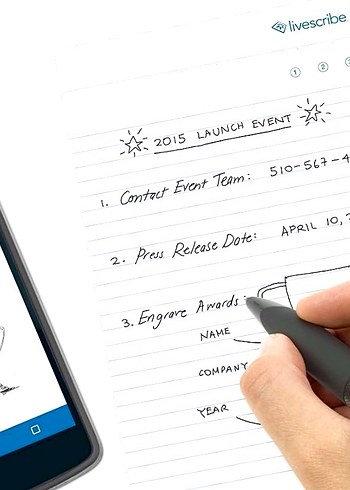 livescribe
1 2
2015 LAUNCH EVENT
1. Contact Event Team: 510-567-4
2. Press Release Date: APRIL 10,
3. Engrave Awards:
NAME
COMPANY
YEAR